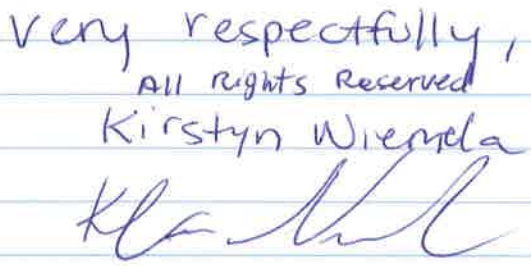 Very respectfully,
All Rights Reserved
Kirstyn Wiemda